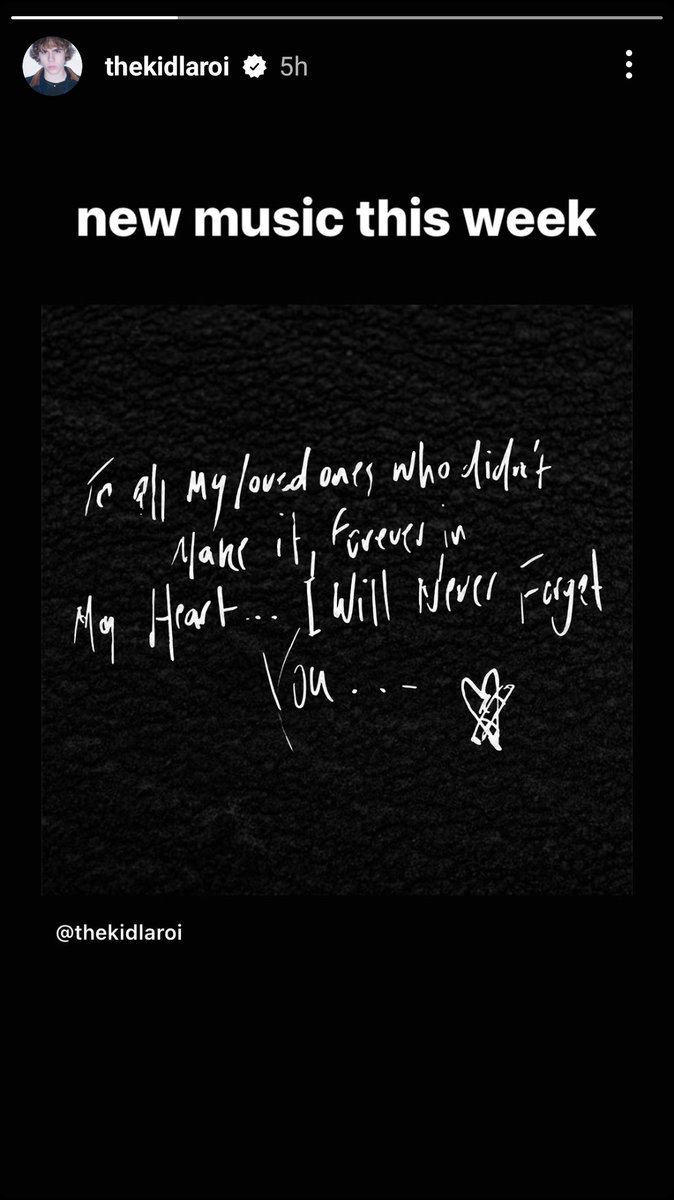 thekidlaroi 5h
new music this week
To all My loved ones who didn't
Make it, Forever in
My Heart... I Will Never Forget
You...-
@thekidlaroi